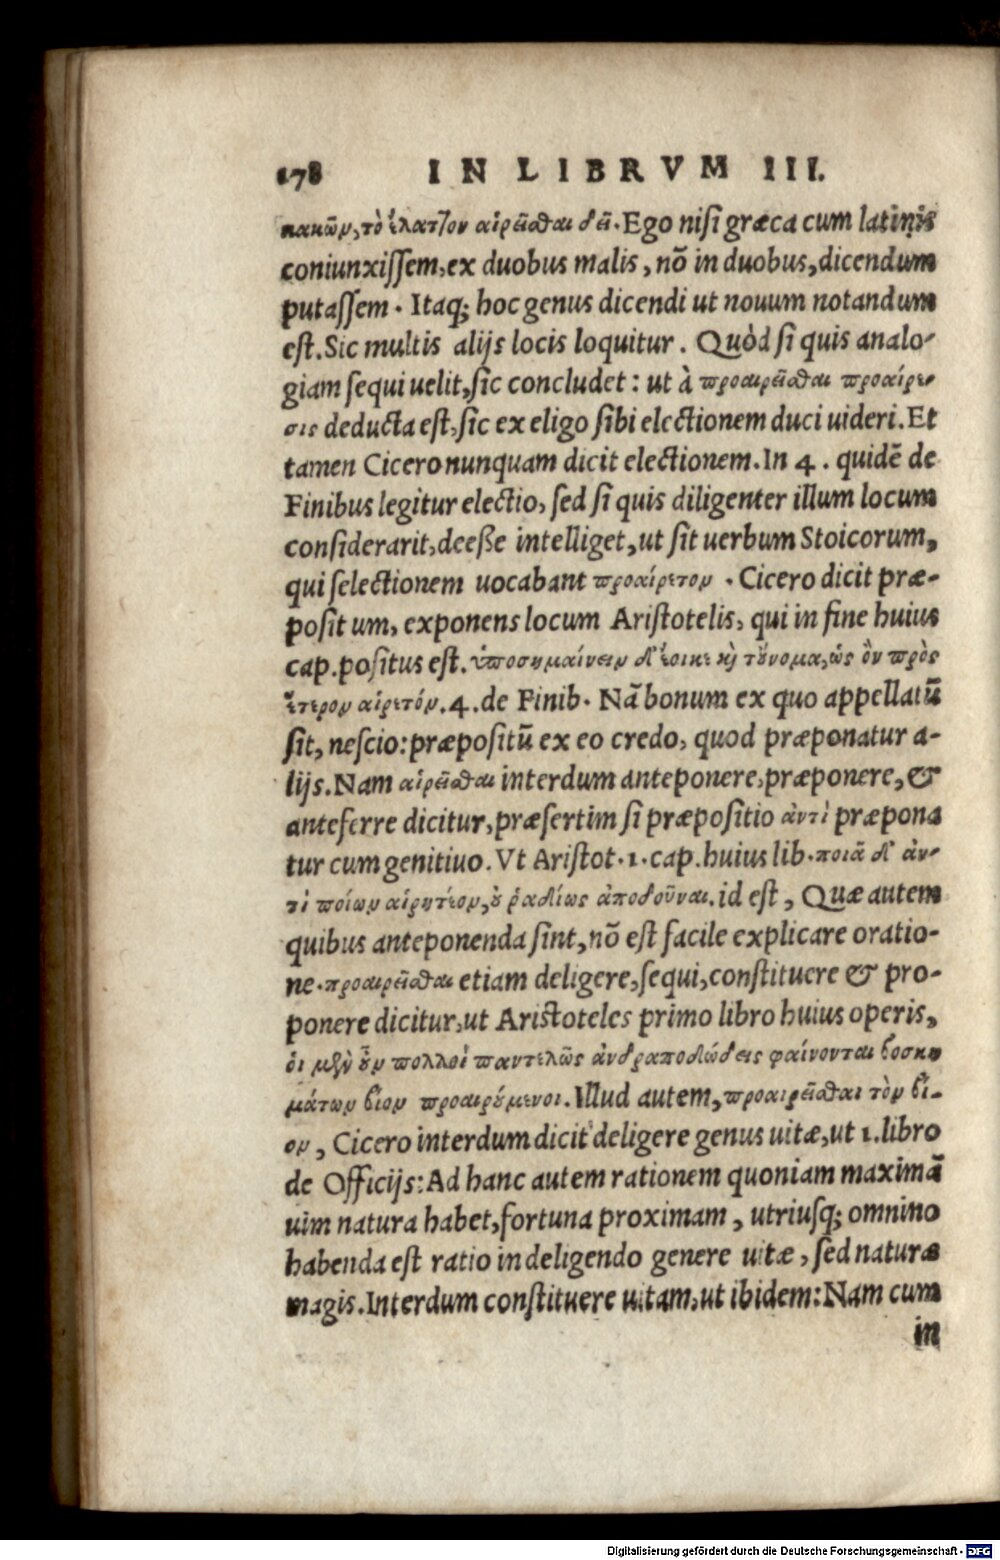 178 IN LIBRVM III.
κακῶν, τὸ ἔλαττον αἱρεῖσθαι δεῖ. Ego nisi græca cum latinis
coniunxissem, ex duobus malis, nō in duobus, dicendum
putassem. Itaq; hoc genus dicendi ut nouum notandum
est. Sic multis alijs locis loquitur. Quòd si quis analo-
giam sequi uelit, sic concludet: ut à προαιρεῖσθαι προαίρε-
σις deducta est, sic ex eligo sibi electionem duci uideri. Et
tamen Cicero nunquam dicit electionem. In 4. quidē de
Finibus legitur electio, sed si quis diligenter illum locum
considerarit, deesse intelliget, ut sit uerbum Stoicorum,
qui selectionem uocabant προαίρετον. Cicero dicit præ-
posit um, exponens locum Aristotelis, qui in fine huius
cap. positus est. ὑποσημαίνειν δ' ἔοικε κὶ τοὔνομα, ὡς ὂν πρὸς
ἕτερον αἱρετόν. 4. de Finib. Nā bonum ex quo appellatū
sit, nescio: præpositū ex eo credo, quod præponatur a-
lijs. Nam αἱρεῖσθαι interdum anteponere, præponere, &
anteferre dicitur, præsertim si præpositio ἀντὶ præpona
tur cum genitiuo. Vt Aristot. 1. cap. huius lib. ποιᾶ δ' ἀν-
τὶ ποίων αἱρητέον, οὐ ῥαδίως ἀποδοῦναι. id est, Quæ autem
quibus anteponenda sint, nō est facile explicare oratio-
ne. προαιρεῖσθαι etiam deligere, sequi, constituere & pro-
ponere dicitur, ut Aristoteles primo libro huius operis,
ὁι μὲν οὖν πολλοὶ παντελῶς ἀνδραποδώδεις φαίνονται βοσκη
μάτων βίον προαιρούμενοι. Illud autem, προαιρεῖσθαι τὸν βί-
ον, Cicero interdum dicit deligere genus uitæ, ut 1. libro
de Officijs: Ad hanc autem rationem quoniam maximā
uim natura habet, fortuna proximam, utriusq; omnino
habenda est ratio in deligendo genere uitæ, sed naturæ
magis. Interdum constituere uitam, ut ibidem: Nam cum
in
Digitalisierung gefördert durch die Deutsche Forschungsgemeinschaft - DFG